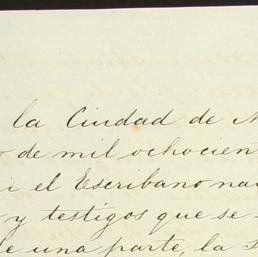 la Ciudad de
de mil ochocien
el Escribano
y testigos que se
de una parte, la